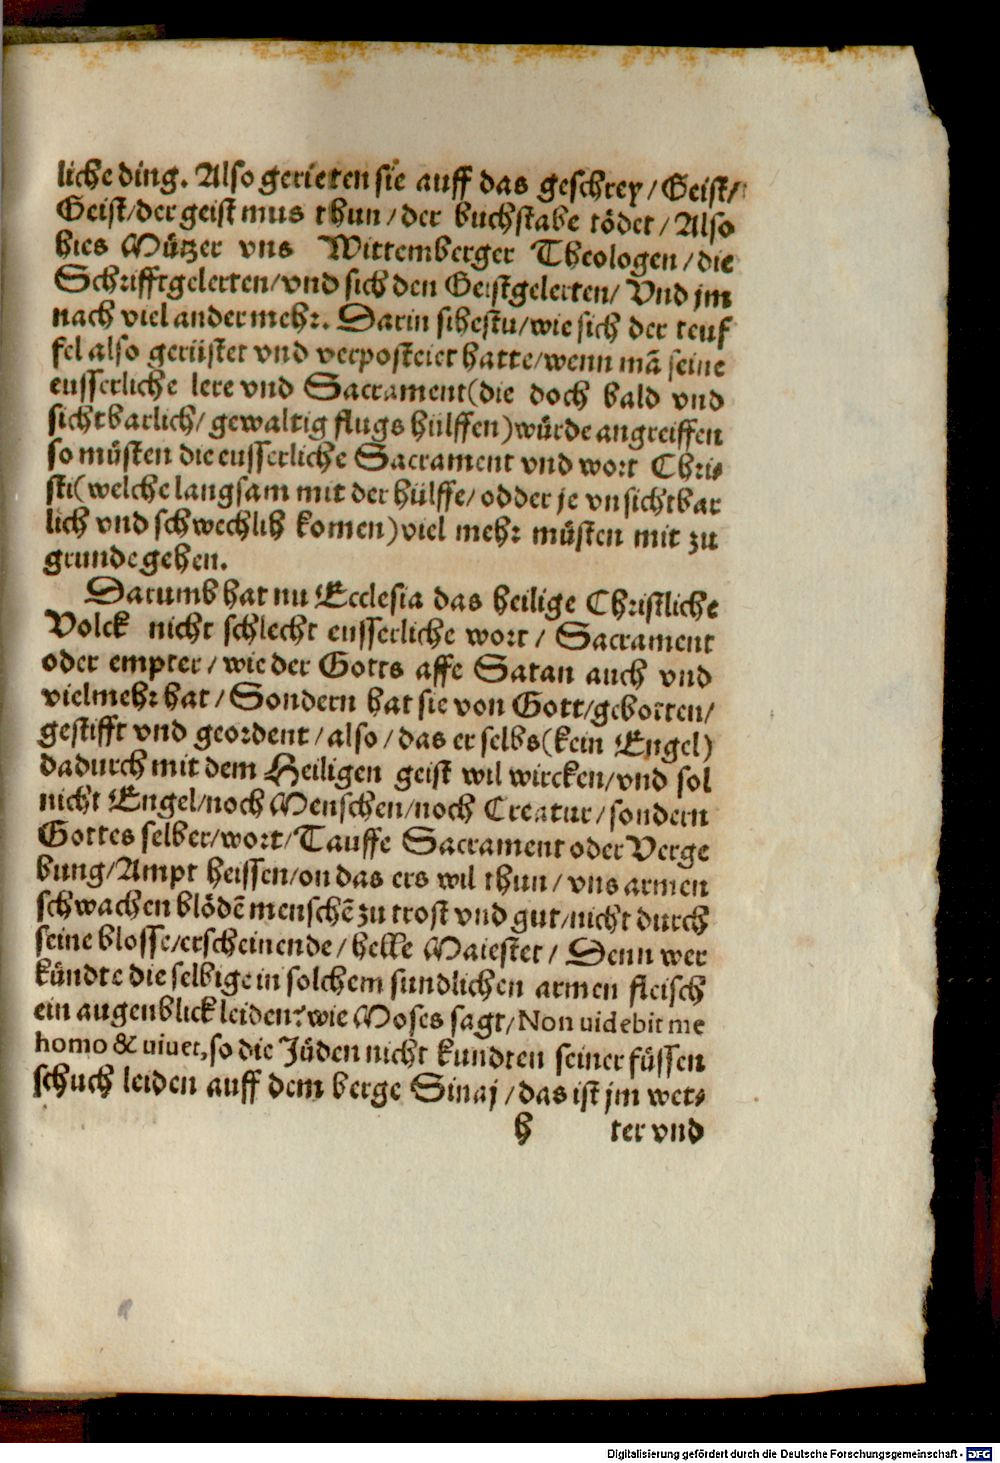 liche ding. Also gerieten sie auff das geschrey / Geist /
Geist / der geist mus thun / der buchstabe tödet / Also
hies Mützer vns Wittemberger Theologen / die
Schrifftgelerten / vnd sich den Geistgelerten / Vnd jm
nach viel ander mehr. Darin sihestu / wie sich der teuf
fel also gerüstet vnd verposteiet hatte / wenn mā seine
eusserliche lere vnd Sacrament (die doch bald vnd
sichtbarlich / gewaltig flugs hülffen) würde angreiffen
so müsten die eusserliche Sacrament vnd wort Chri-
sti (welche langsam mit der hülffe / odder je vnsichtbar
lich vnd schwechlih komen) viel mehr müsten mit zu
grunde gehen.
Darumb hat nu Ecclesia das heilige Christliche
Volck nicht schlecht eusserliche wort / Sacrament
oder empter / wie der Gotts affe Satan auch vnd
vielmehr hat / Sondern hat sie von Gott / geboten /
gestifft vnd geordent / also / das er selbs (kein Engel)
dadurch mit dem Heiligen geist wil wircken / vnd sol
nicht Engel / noch Menschen / noch Creatur / sondern
Gottes selber / wort / Tauffe Sacrament oder Verge
bung / Ampt heissen / on das ers wil thun / vns armen
schwachen blödē menschē zu trost vnd gut / nicht durch
seine blosse / erscheinende / helle Maiestet / Denn wer
kündte die selbige in solchem sundlichen armen fleisch
ein augenblick leiden? wie Moses sagt / Non uidebit me
homo & uiuet, so die Jüden nicht kundten seiner füssen
schuch leiden auff dem berge Sinaj / das ist jm wet-
h ter vnd
Digitalisierung gefördert durch die Deutsche Forschungsgemeinschaft - DFG